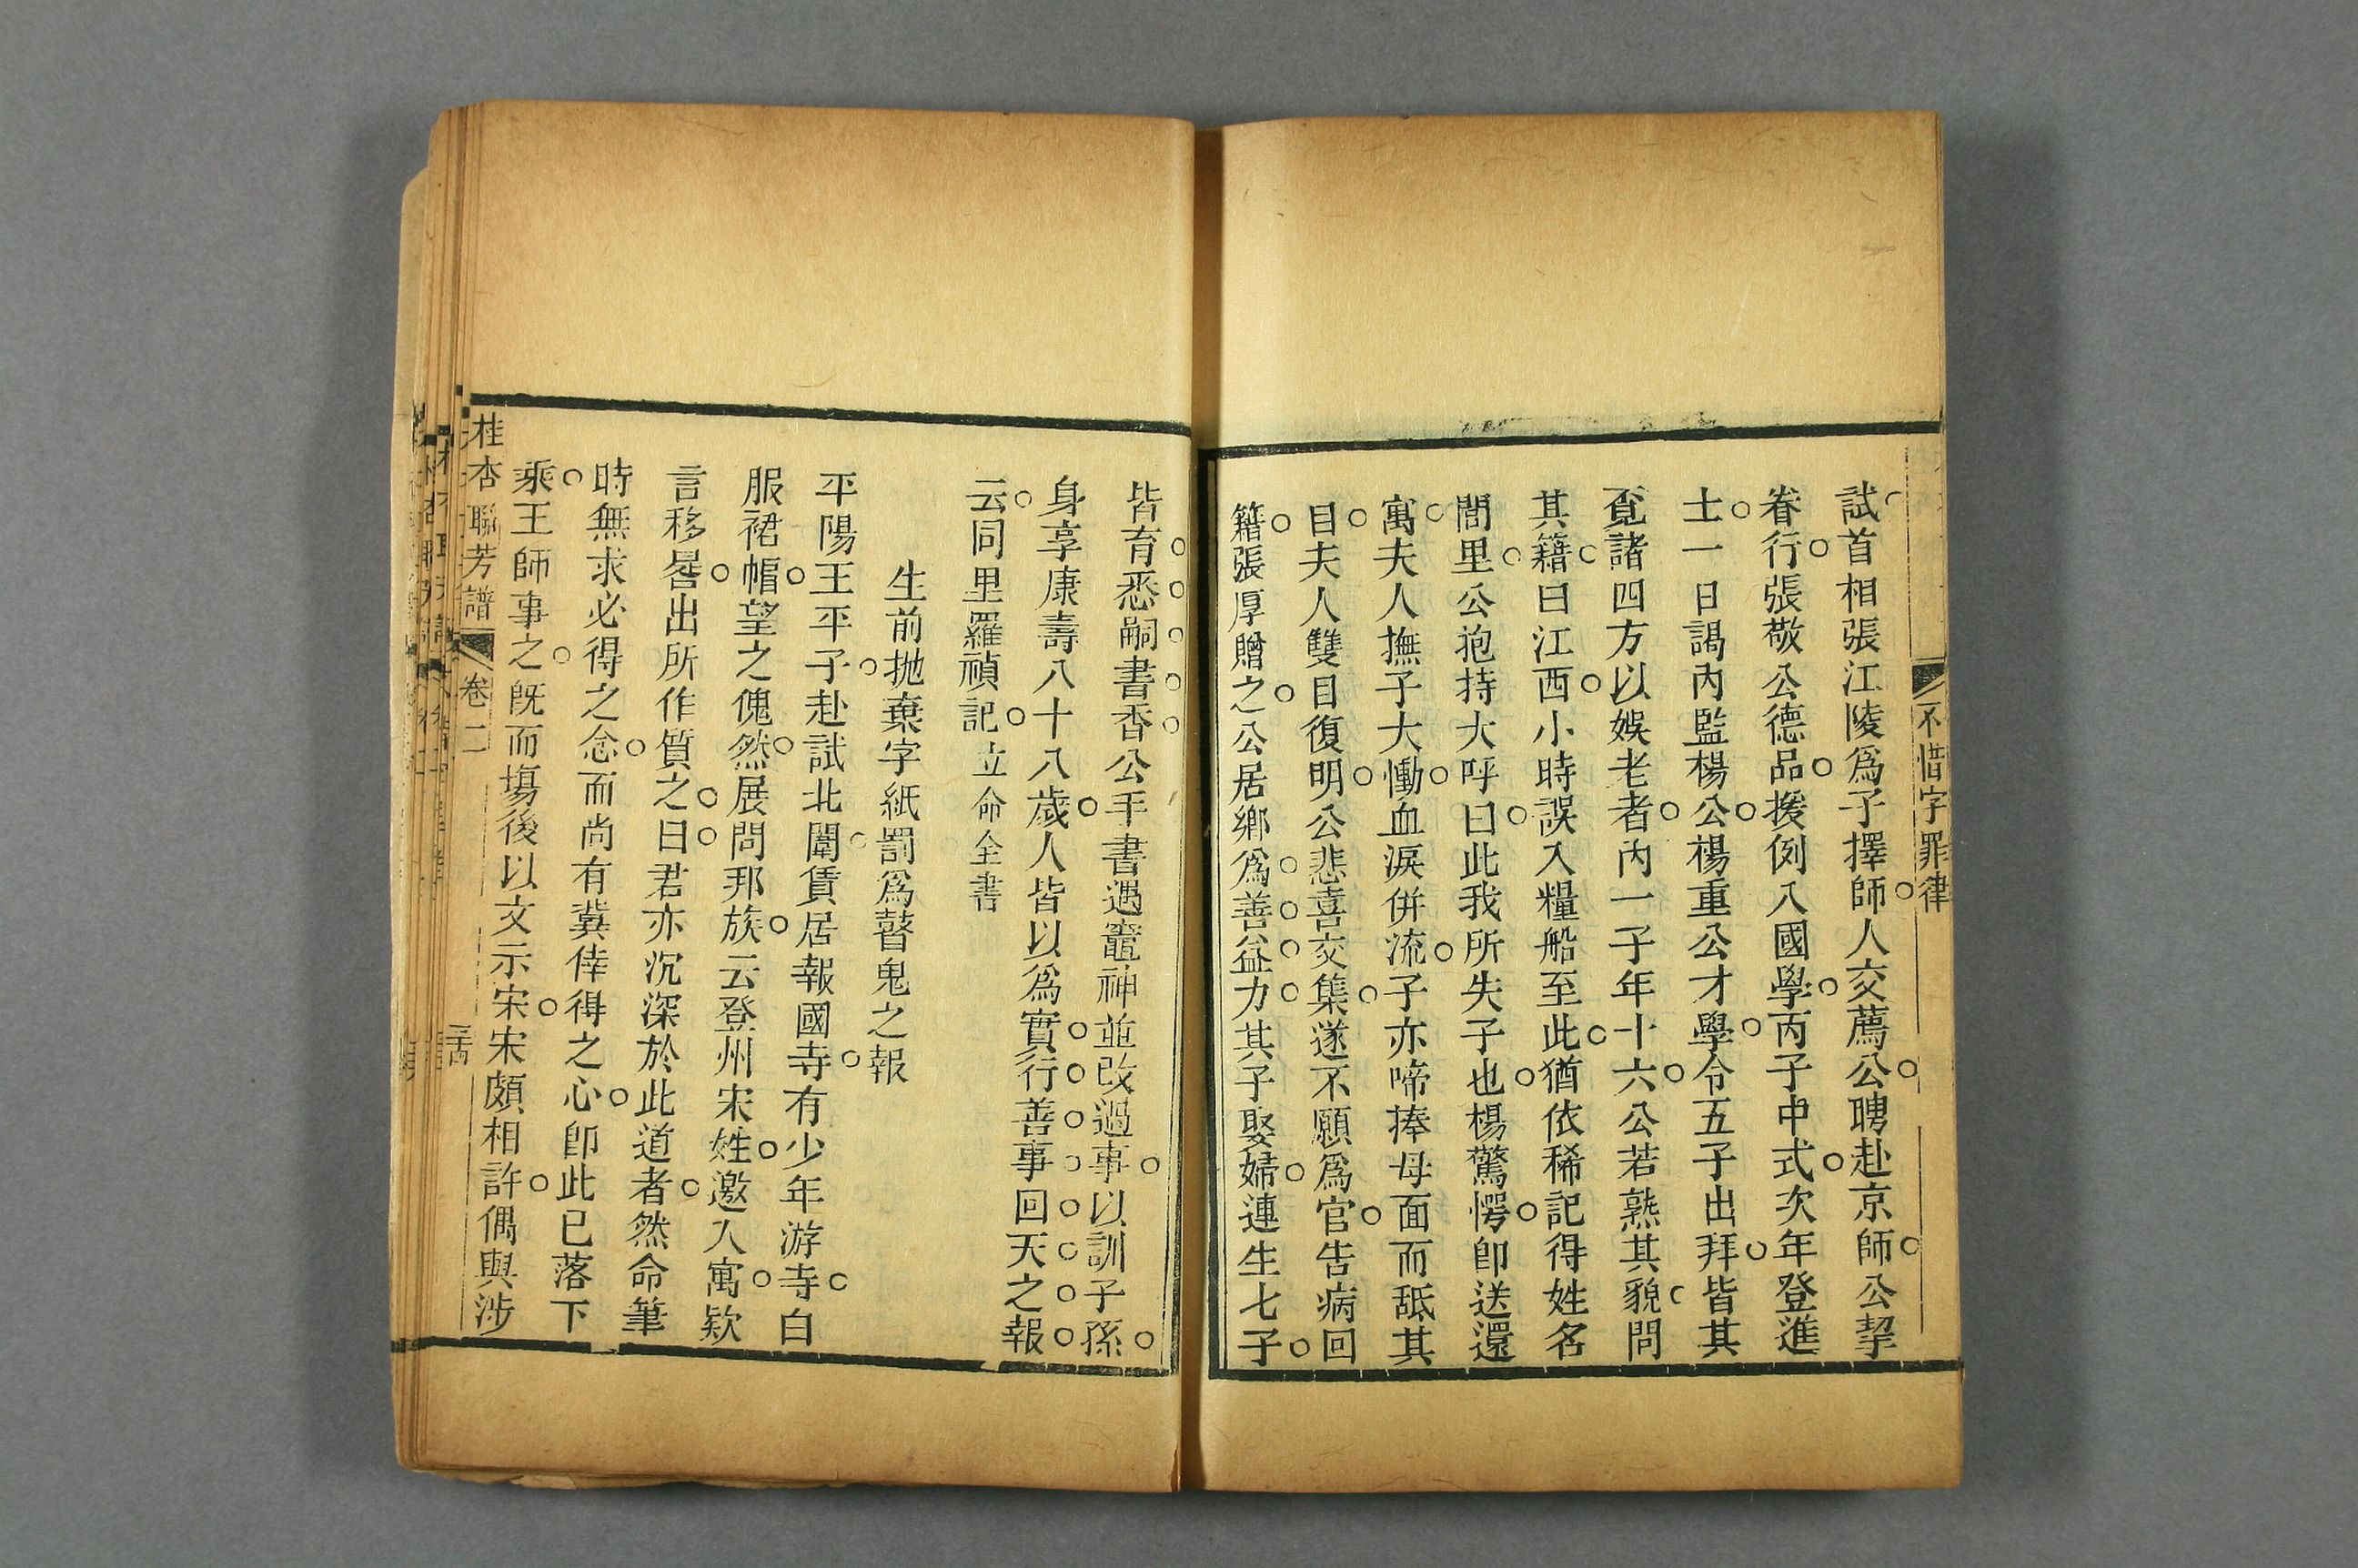 不惜字罪律
試首相張江陵爲子擇師○人交薦公○聘赴京師○公挈
眷行○張敬公德品○援例入國學○丙子中式○次年登進
士○一日謁內監楊公○楊重公才學○令五子出拜○皆其
覔諸四方以娛老者○內一子年十六○公若熟其貌○問
其籍○曰江西○小時誤入糧船至此○猶依稀記得姓名
閭里○公抱持大呼曰○此我所失子也○楊驚愕○卽送還
寓○夫人撫子大慟○血淚併流○子亦啼捧母面而舐其
目○夫人雙目復明○公悲喜交集○遂不願爲官○告病回
籍○張厚贈之○公居鄉爲善益力其子娶婦○連生七子○
皆育悉嗣書香公手書遇竈神並改過事○以訓子孫○
身享康壽八十八歲○人皆以爲實行善事回天之報
云○同里羅禎記○立命全書
生前拋棄字紙罰爲瞽鬼之報
平陽王平子○赴試北闈○賃居報國寺○有少年游寺○白
服裙帽○望之傀然○展問邦族○云登州宋姓○邀入寓○欵
言移晷○出所作質之○曰○君亦沉深於此道者○然命筆
時無求必得之念○而尚有冀倖得之心○卽此已落下
乘○王師事之○旣而塲後以文示宋○宋頗相許○偶與涉
桂杏聯芳譜 卷二